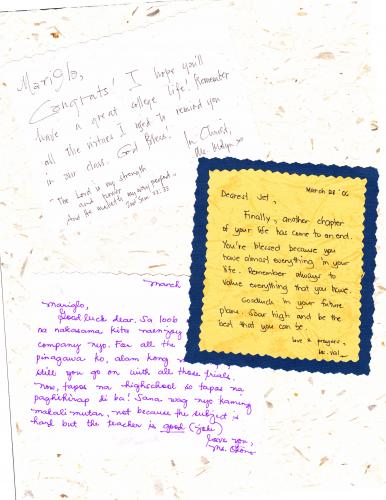 Mariglo,
Congrats! I hope you'll
have a great college life! Remember
all the virtues I used to remind you
in our class. God Bless!
In Christ,
"The Lord is my strength
and power
And He maketh my way perfect.
2nd Sam 22:33
March 28 '06
Dearest Jet,
Finally, another chapter
of your life has come to an end.
You're blessed because you
have almost everything in your
life. Remember always to
value everything that you have.
Goodluck in your future
plans. Soar high and be the
best that you can be.
love & prayers,
March
Mariglo,
Good luck dear. Sa loob
na nakasama kita naenjoy
company nyo. For all the
pinagawa ko, alam kong
still you go on with all those trials.
Now, tapos na highschool so tapos na
paghihirap di ba! Sana wag nyo kaming
makalimutan, not because the subject is
hard but the teacher is good (joke)
Love you,